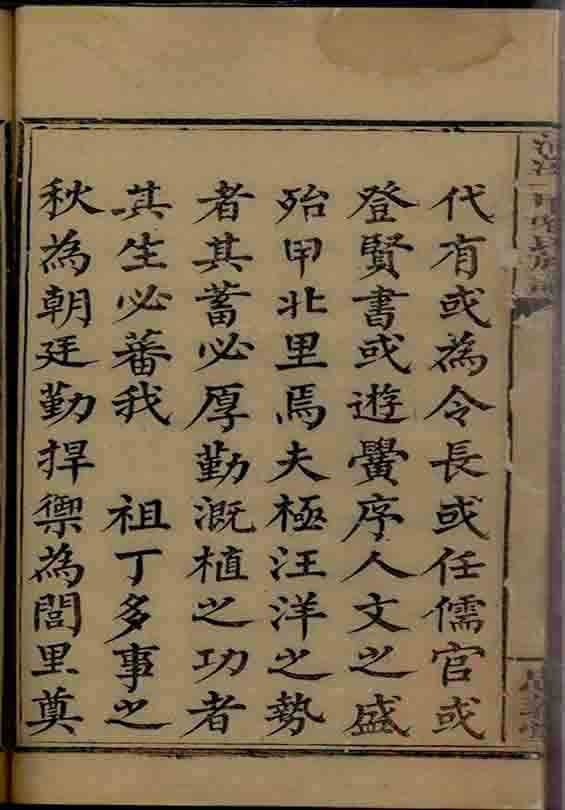 代有或為令長或任儒官或
登賢書或遊黌序人文之盛
殆甲北里焉夫極汪洋之勢
者其蓄必厚勤溉植之功者
其生必蕃我　祖丁多事之
秋為朝廷勤捍禦為閭里奠